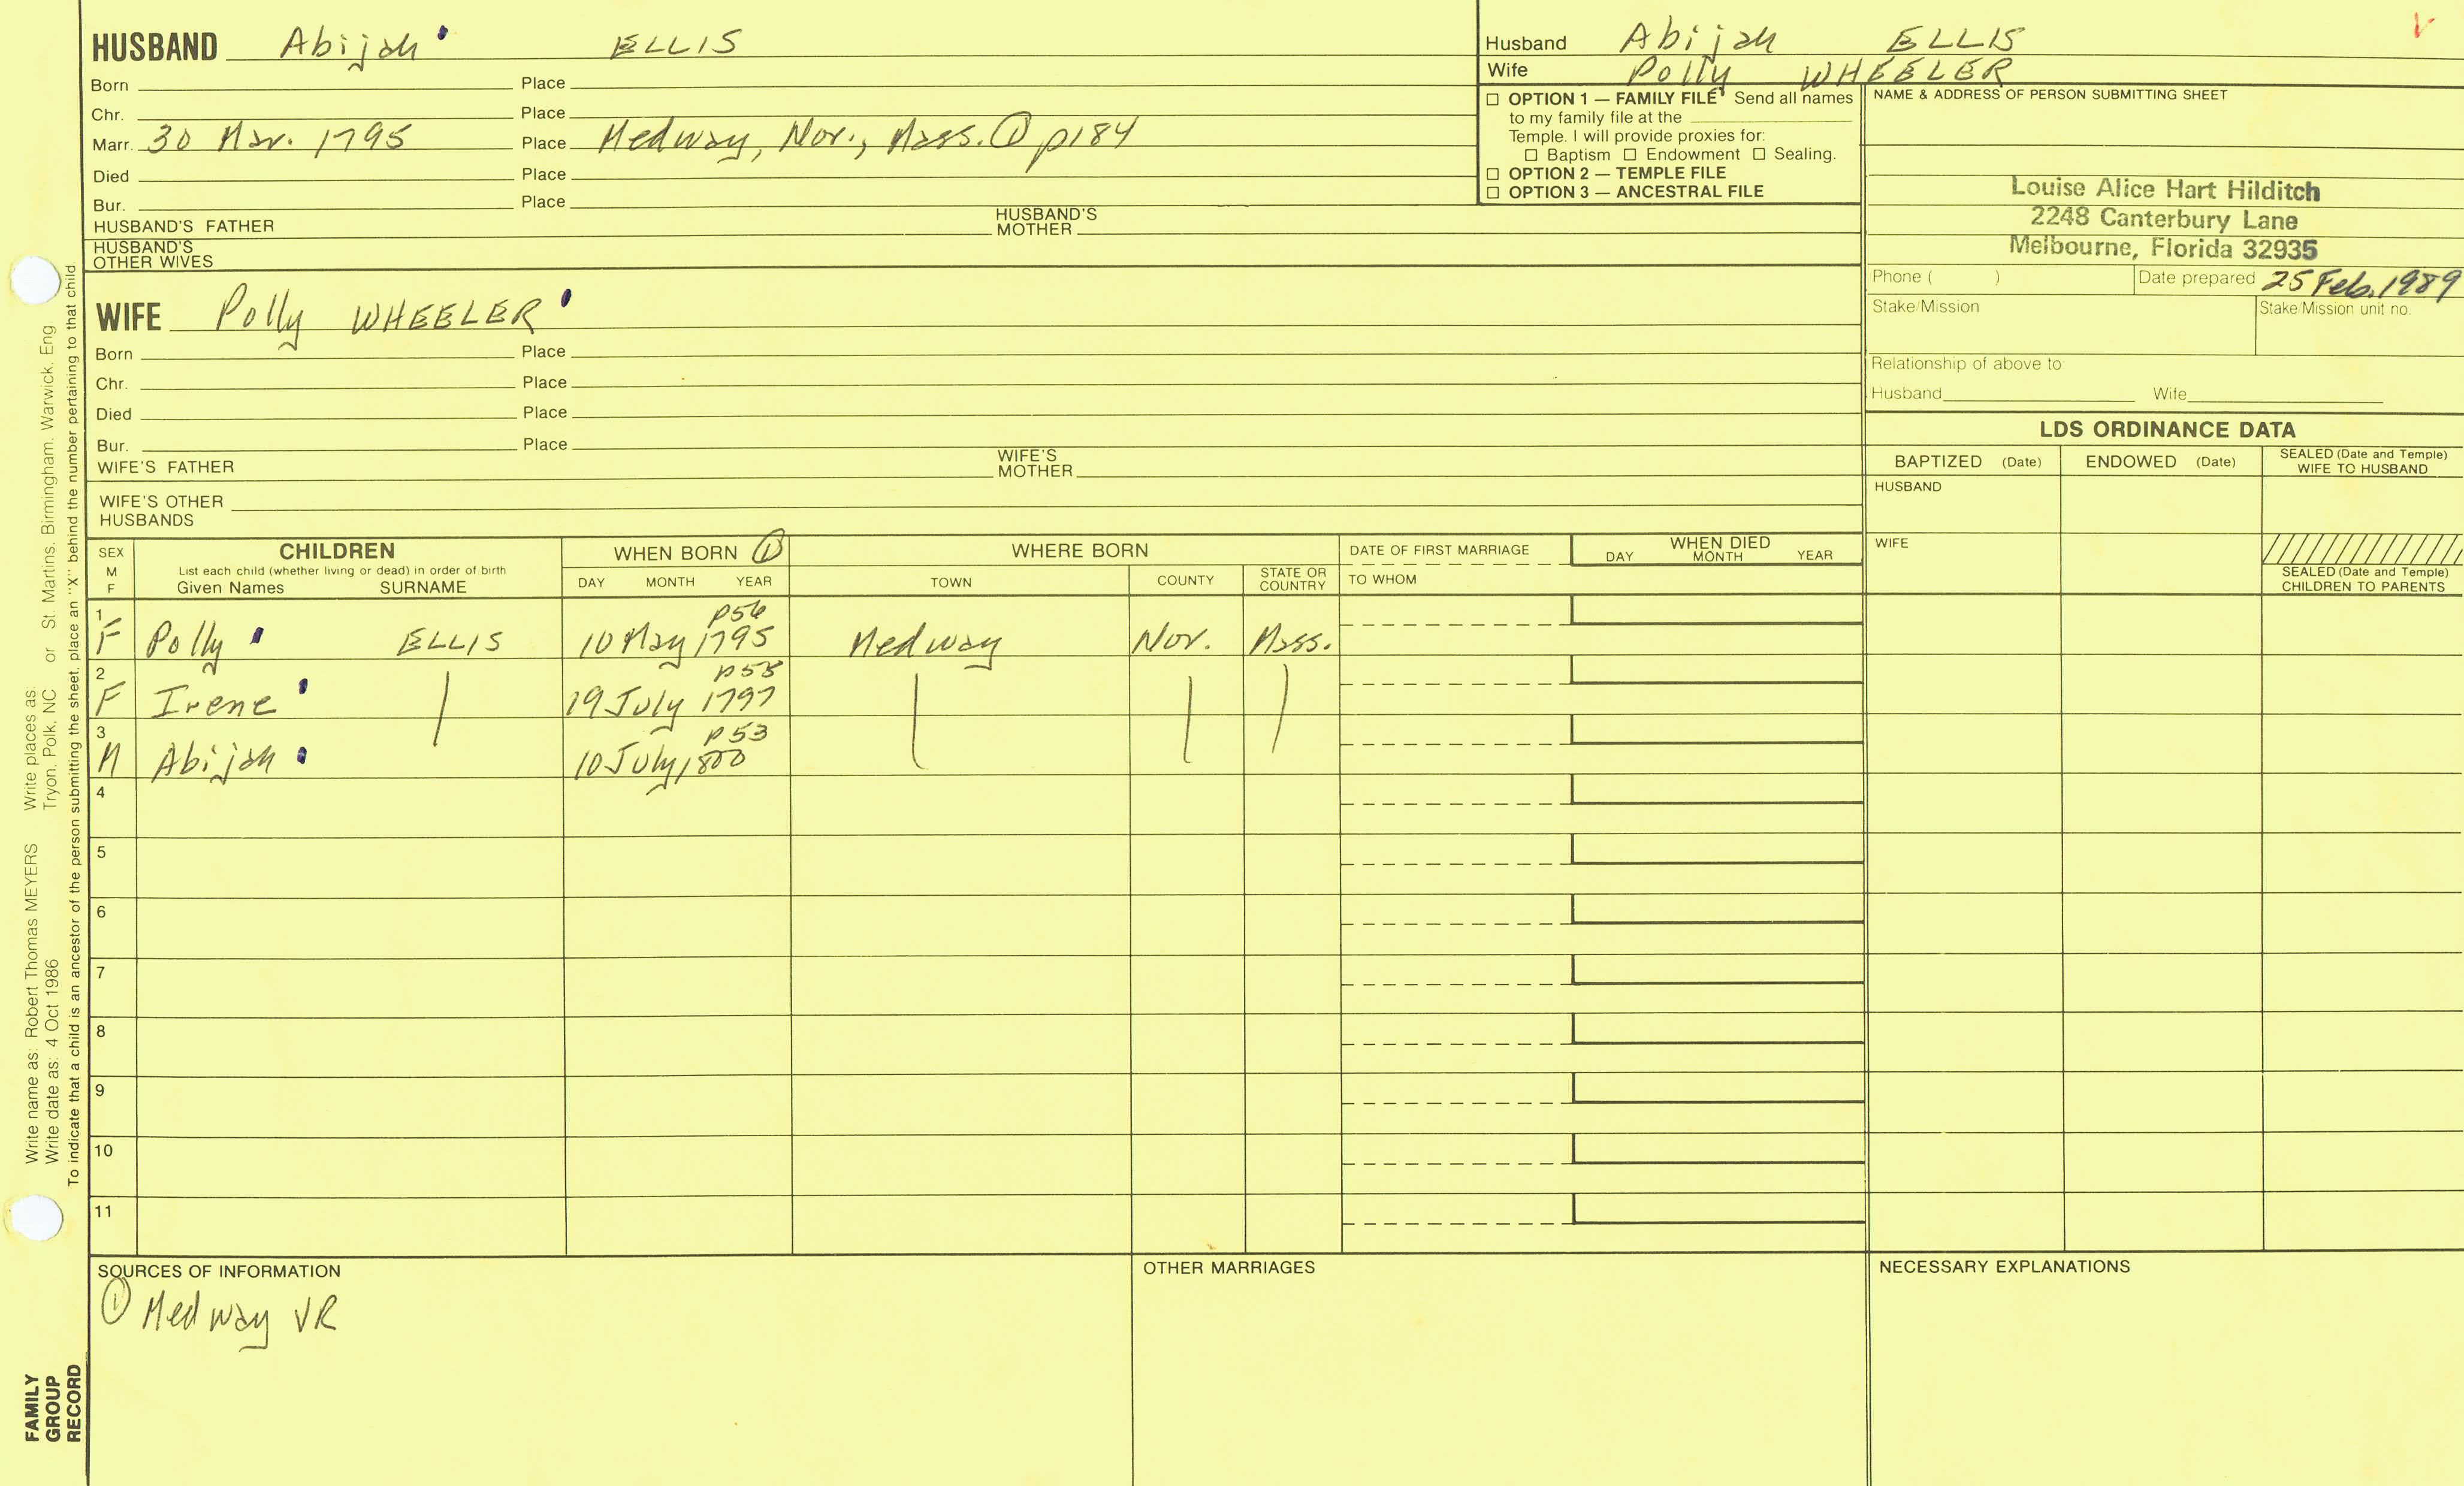 HUSBAND Abijah ELLIS
Born Place
Chr. Place
Marr. 30 Mar. 1795 Place Medway, Nor., Mass. ① p184
Died Place
Bur. Place
HUSBAND'S FATHER HUSBAND'S MOTHER
HUSBAND'S OTHER WIVES
Husband Abijah ELLIS
Wife Polly WHEELER
☐ OPTION 1 — FAMILY FILE Send all names
to my family file at the
Temple. I will provide proxies for:
☐ Baptism ☐ Endowment ☐ Sealing.
☐ OPTION 2 — TEMPLE FILE
☐ OPTION 3 — ANCESTRAL FILE
NAME & ADDRESS OF PERSON SUBMITTING SHEET
Louise Alice Hart Hilditch
2248 Canterbury Lane
Melbourne, Florida 32935
Phone ( ) Date prepared 25 Feb. 1989
Stake/Mission Stake/Mission unit no.
Relationship of above to
Husband Wife
WIFE Polly WHEELER
Born Place
Chr. Place
Died Place
Bur. Place
WIFE'S FATHER WIFE'S MOTHER
WIFE'S OTHER
HUSBANDS
LDS ORDINANCE DATA
BAPTIZED (Date) ENDOWED (Date) SEALED (Date and Temple) WIFE TO HUSBAND
HUSBAND
WIFE
SEALED (Date and Temple)
CHILDREN TO PARENTS
SEX M F
CHILDREN
List each child (whether living or dead) in order of birth
Given Names SURNAME
WHEN BORN ①
DAY MONTH YEAR
WHERE BORN
TOWN COUNTY STATE OR COUNTRY
DATE OF FIRST MARRIAGE
TO WHOM
WHEN DIED
DAY MONTH YEAR
1 p56
F Polly ELLIS 10 May 1795 Medway Nor. Mass.
2 p55
F Irene | 19 July 1797 | | |
3 p53
M Abijah 10 July 1800
4
5
6
7
8
9
10
11
SOURCES OF INFORMATION
① Medway VR
OTHER MARRIAGES
NECESSARY EXPLANATIONS
Write name as: Robert Thomas MEYERS Write places as: Tryon, Polk, NC or St. Martins, Birmingham, Warwick, Eng
Write date as: 4 Oct 1986
To indicate that a child is an ancestor of the person submitting the sheet, place an "X" behind the number pertaining to that child.
FAMILY
GROUP
RECORD